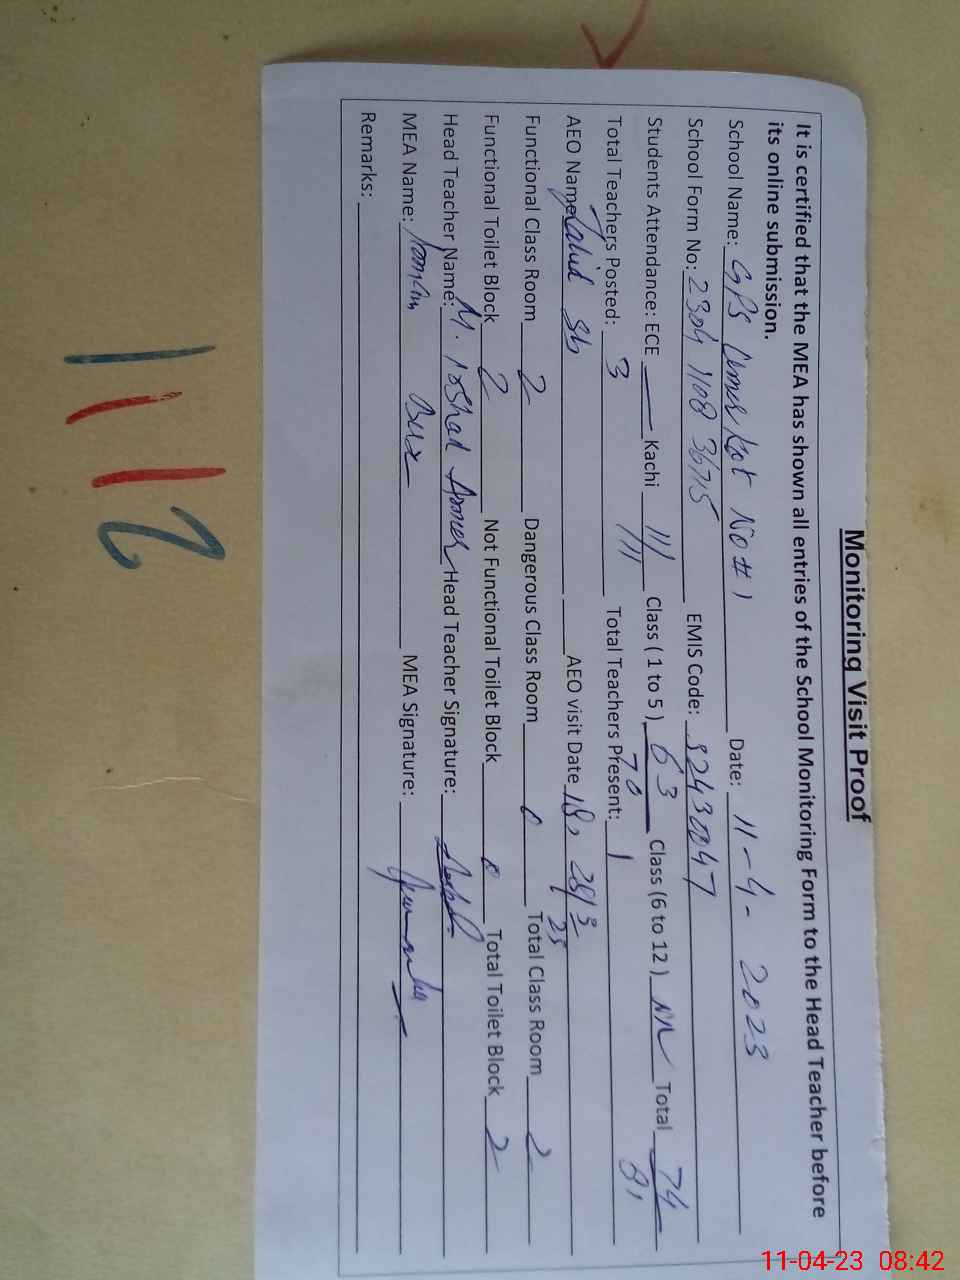 Monitoring Visit Proof
It is certified that the MEA has shown all entries of the School Monitoring Form to the Head Teacher before
its online submission.
School Name: GPS Umer Kot No # 1 Date: 11-4-2023
School Form No: 2304 1108 36715 EMIS Code: 32430047
Students Attendance: ECE — Kachi 11/ Class ( 1 to 5 ) 63 Class (6 to 12 ) Total 74
/11 70 81
Total Teachers Posted: 3 Total Teachers Present: 1
AEO Name AEO visit Date 18, 28/3
23
Functional Class Room 2 Dangerous Class Room 0 Total Class Room 2
Functional Toilet Block 2 Not Functional Toilet Block 0 Total Toilet Block 2
Head Teacher Name: M. Irshad Head Teacher Signature:
MEA Name: Bux MEA Signature:
Remarks:
1112
11-04-23 08:42